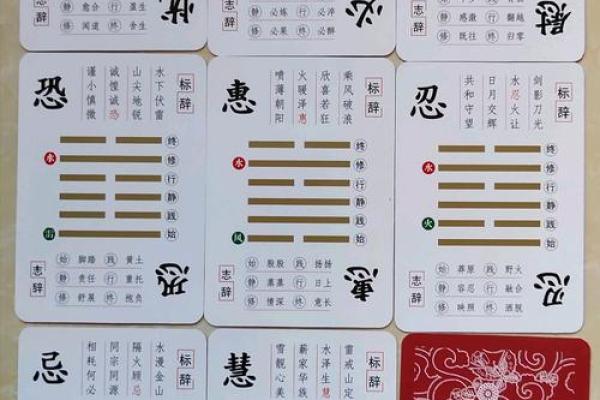 志辞
静 愈合 行 盈生
修 闻道 终 舍生
忧
志辞
静 必炼 行 必淬
修 必果 终 必醉
必
志辞
静 感激 行 翻越
修 既往 终 归零
慰
恐
标辞
水下伏雷
山尖地锐
诚惶诚恐
谨小慎微
终
水 修
行
静
践
雷 始
志辞
始 脚踏 践 黄土
静 责任 行 重托
修 舒展 终 抱负
恐
惠
标辞
乘风破浪
欣喜若狂
火暖泽惠
喷薄朝阳
终
水 修
行
静
践
风 始
志辞
始 殷殷 践 扬扬
静 蒸蒸 行 日上
修 情深 终 意长
惠
忍
标辞
剑影刀光
水忍火让
日月交辉
共和守望
终
水 修
行
静
火 践
始
志辞
始 莽原 践 野火
静 容忍 行 融合
修 映照 终 洒脱
忍
忌
标辞
水漫金山
隔火顾忌
同宗同源
相耗何必
慧
标辞
雷戒山定
水泽生慧
家华族
雪靓心美